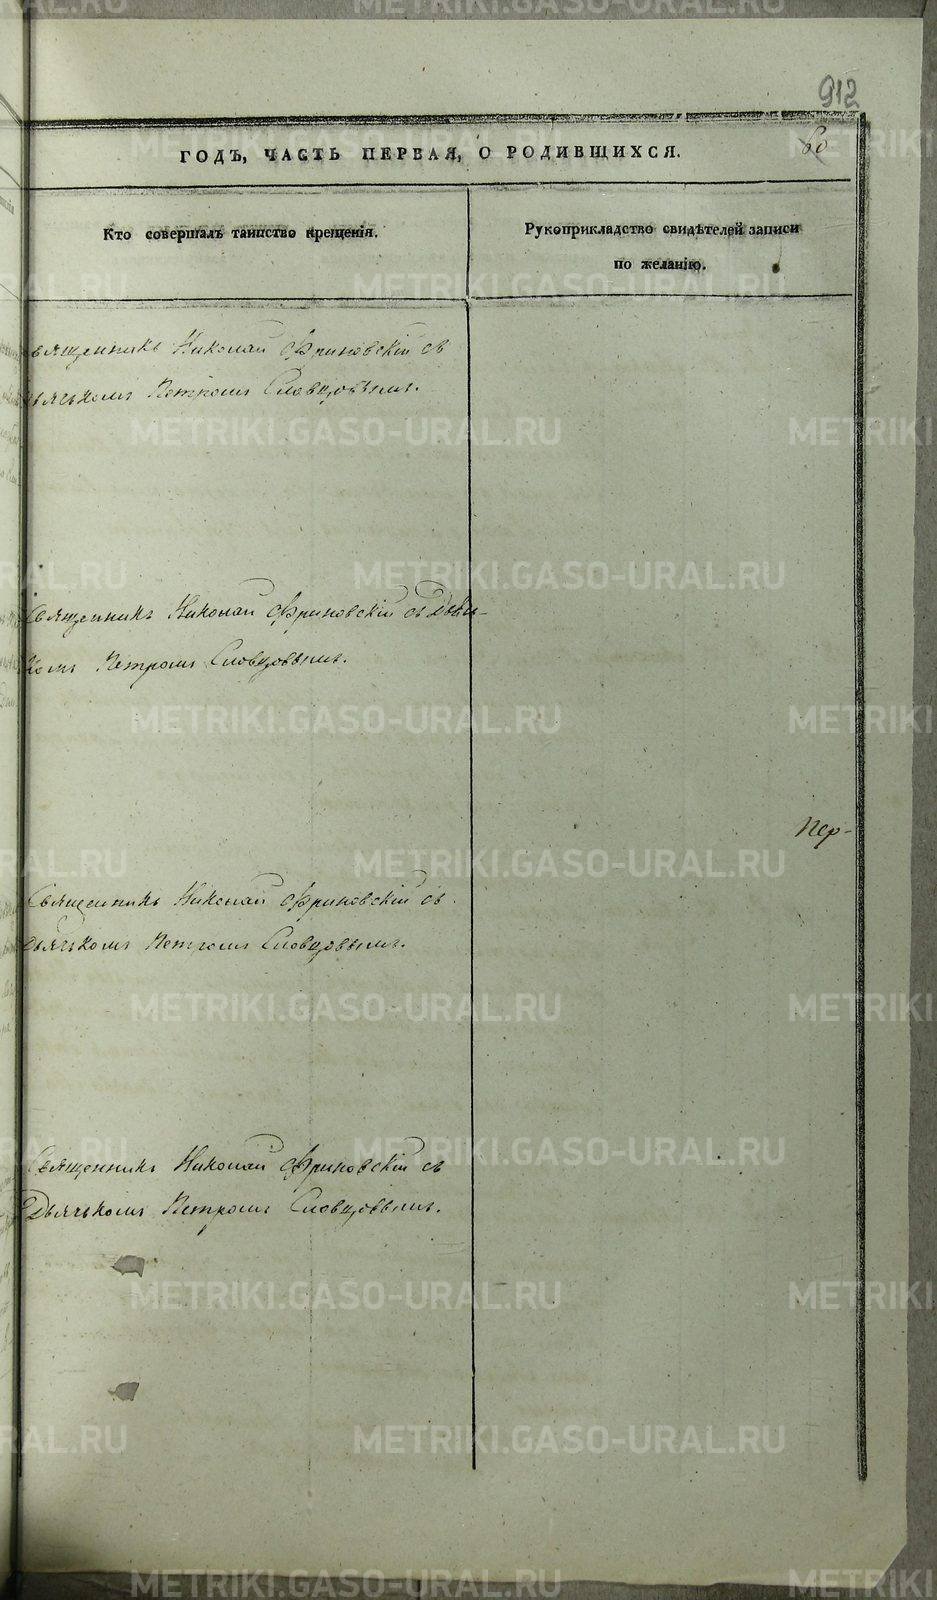 912
60
ГОДЪ, ЧАСТЬ ПЕРВАЯ, О РОДИВШИХСЯ.
Кто совершалъ таинство крещенія.
Рукоприкладство свидѣтелей записи
по желанію.
Священникъ Николай Фриновскій съ
Дьячькомъ Петромъ Словцовымъ.
Священникъ Николай Фриновскій съ Дьячь-
комъ Петромъ Словцовымъ.
Пер-
Священникъ Николай Фриновскій съ
Дьячькомъ Петромъ Словцовымъ.
Священникъ Николай Фриновскій съ
Дьячькомъ Петромъ Словцовымъ.
METRIKI.GASO-URAL.RU